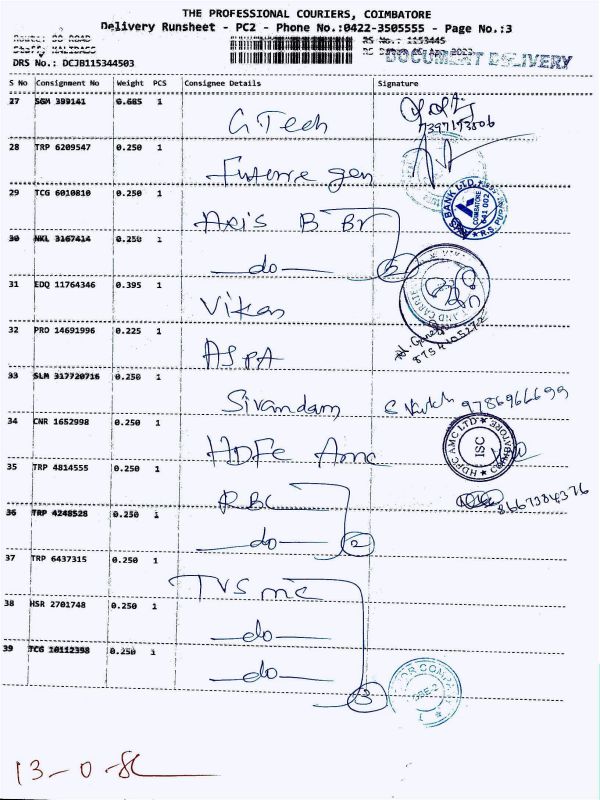 THE PROFESSIONAL COURIERS, COIMBATORE
Delivery Runsheet - PC2 - Phone No.:0422-3505555 - Page No.:3
RS No.: 1153445
DRS No.: DCJB115344503
DOCUMENT DELIVERY
S No Consignment No Weight PCS Consignee Details Signature
27 SGM 399141 0.685 1 G Tech
7397173506
28 TRP 6209547 0.250 1 Future gen
29 TCG 6010810 0.250 1 Axis B Br
BANK LTD. COIMBATORE 641 002
30 NKL 3167414 0.250 1 do
31 EDQ 11764346 0.395 1 Vikas
32 PRO 14691996 0.225 1 ASPA
33 SLM 317720716 0.250 1 Sivandam 9786966699
34 CNR 1652998 0.250 1 HDFC Amc
HDFC AMC LTD ISC COIMBATORE
35 TRP 4814555 0.250 1 RBL
8667384376
36 TRP 4248528 0.250 1 do 2
37 TRP 6437315 0.250 1 TVS mc
38 HSR 2701748 0.250 1 do
39 TCG 10112398 0.250 1 do 3